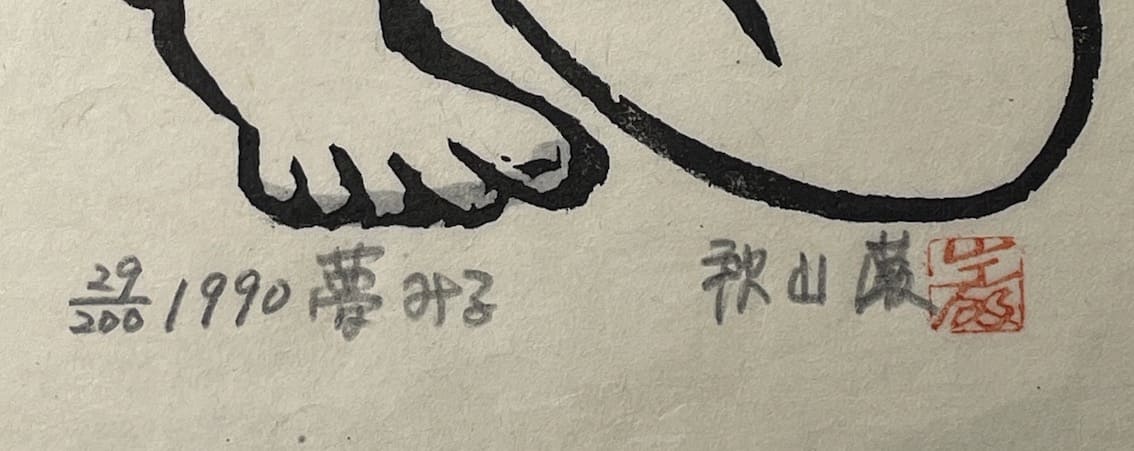 29/200 1990 夢み子 秋山巌